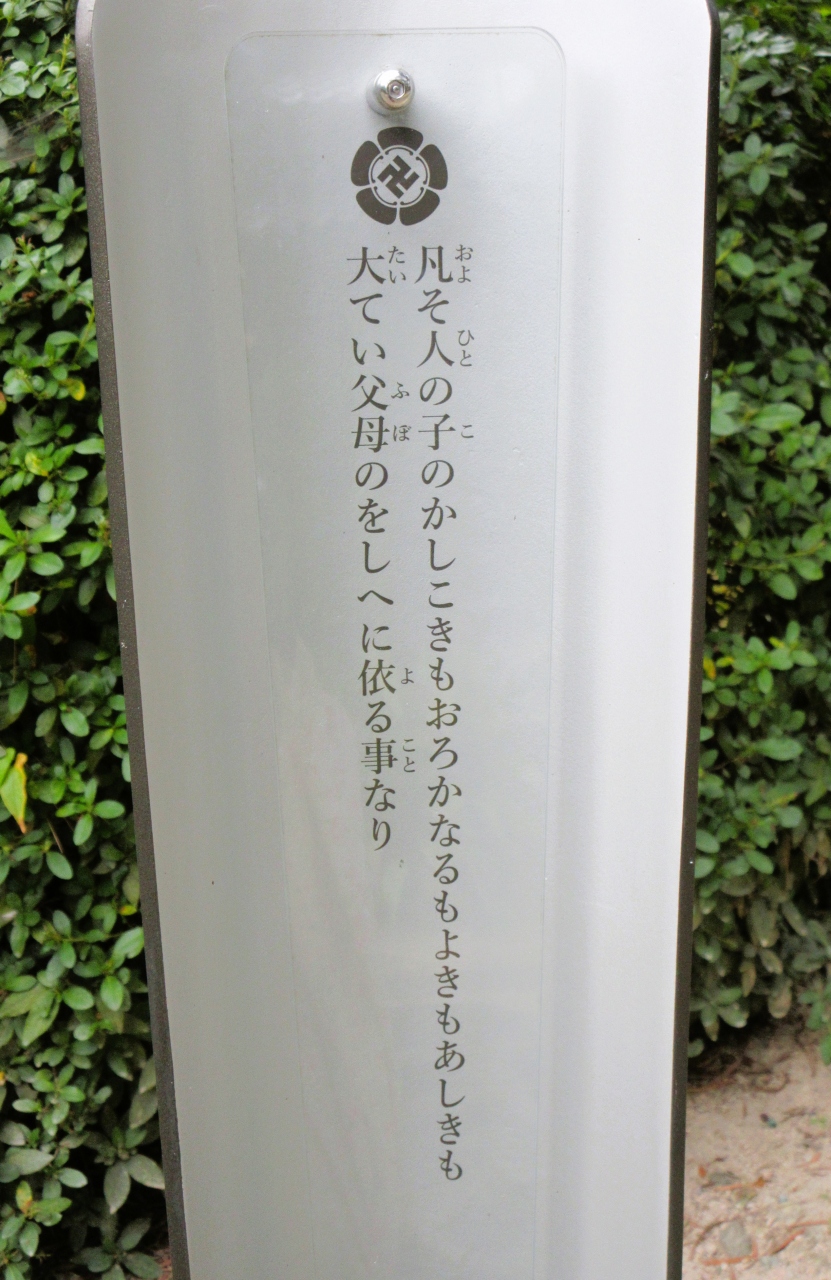 凡そ人の子のかしこきもおろかなるもよきもあしきも
大てい父母のをしへに依る事なり